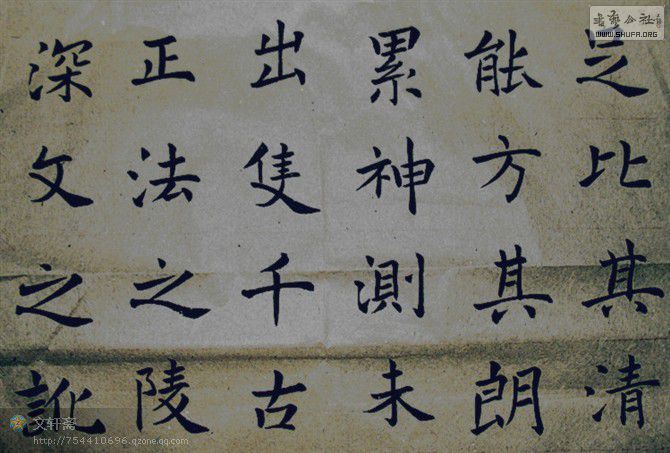 足比其清
能方其朗
累神測未
出隻千古
正法之陵
深文之訛
www.SHUFA.ORG
文轩斋
http://754410696.qzone.qq.com